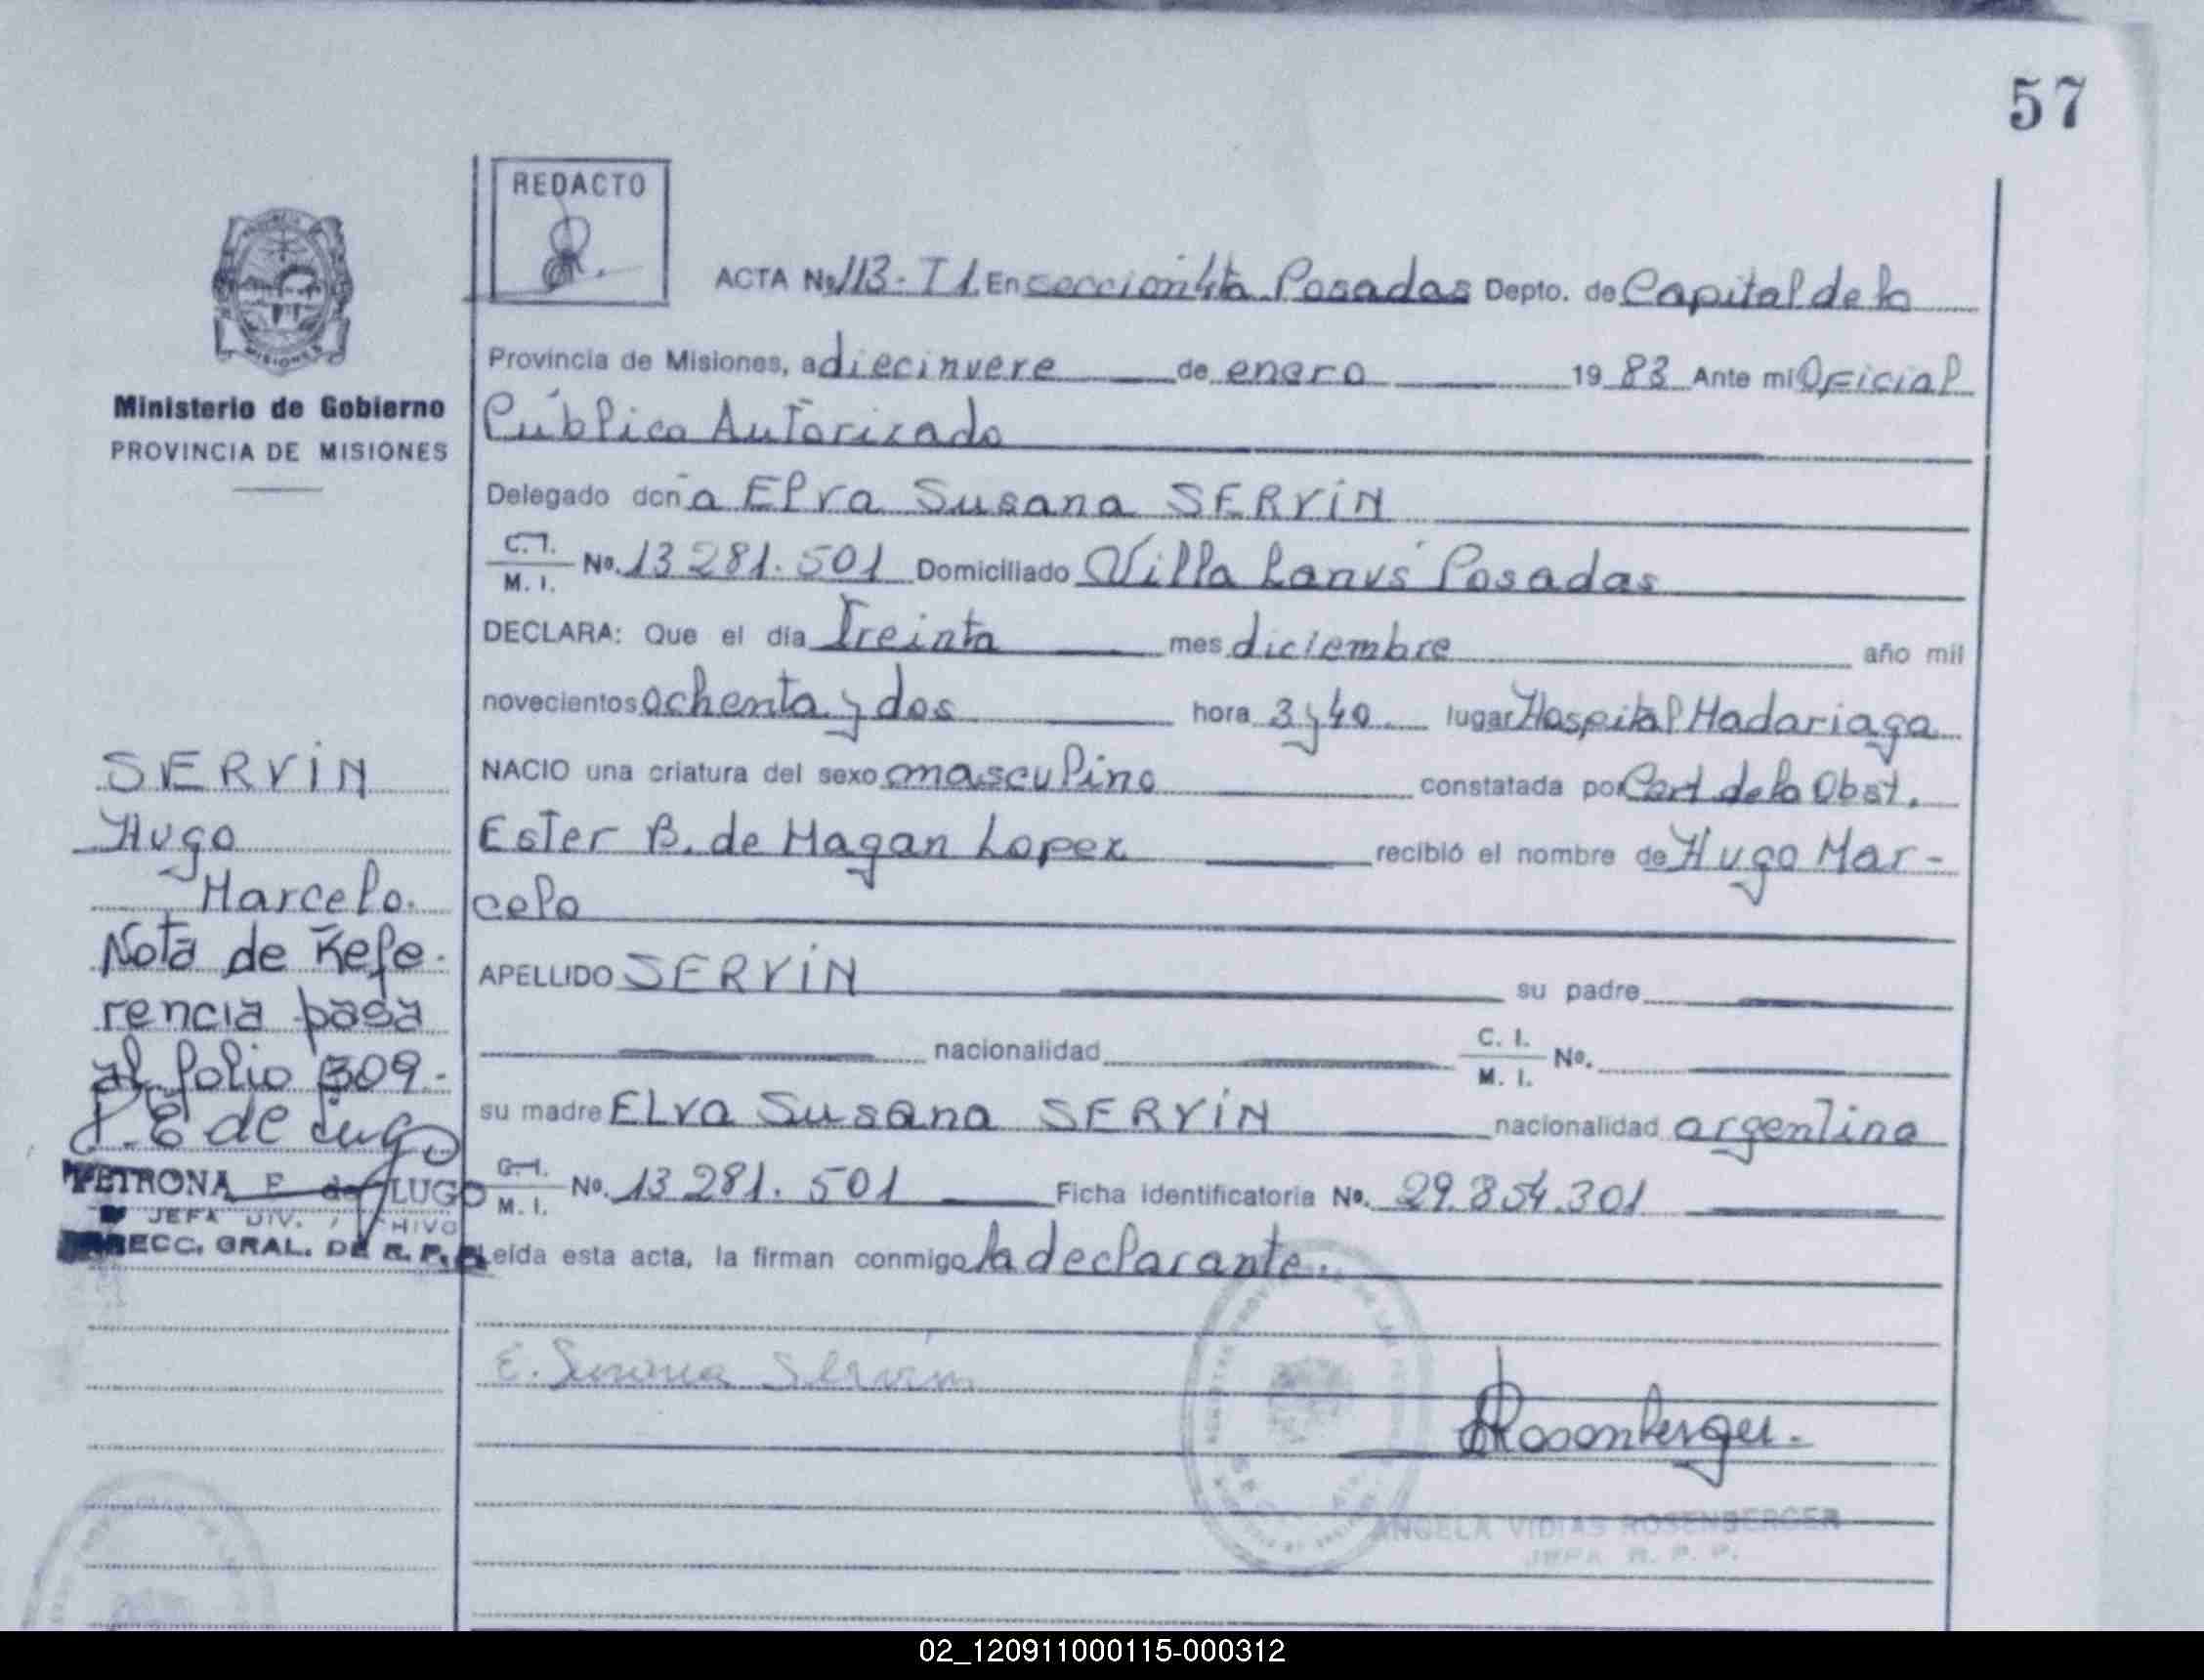 57
REDACTO
ACTA Nº 113 - T 1. En sección 4ta Posadas Depto. de Capital de la
Provincia de Misiones, a diecinueve de enero 19 83 Ante mi Oficial
Público Autorizado
Ministerio de Gobierno
PROVINCIA DE MISIONES
Delegado don a Elva Susana SERVÍN
C.I.
M. I. Nº. 13 281.501 Domiciliado Villa Lanús Posadas
DECLARA: Que el día Treinta mes diciembre año mil
novecientos ochenta y dos hora 3 y 40 lugar Hospital Madariaga
NACIO una criatura del sexo masculino constatada por Cert de la Obst.
Ester B. de Magan Lopez recibió el nombre de Hugo Mar-
celo
APELLIDO SERVÍN su padre
nacionalidad C. I.
M. I. Nº.
su madre ELva Susana SERVÍN nacionalidad argentina
C.I.
M. I. Nº. 13 281. 501 Ficha identificatoria Nº. 29.854.301
Leída esta acta, la firman conmigo la declarante.
SERVÍN
Hugo
Marcelo.
Nota de Refe-
rencia pasa
al folio 309.-
P. E de Lugo
PETRONA E de LUGO
JEFA DIV.
DIRECC. GRAL. DE R. P.
E. Susana Servín
Rosenberger.
ANGELA VIDIAS ROSENBERGER
JEFA R. P. P.
02_120911000115-000312